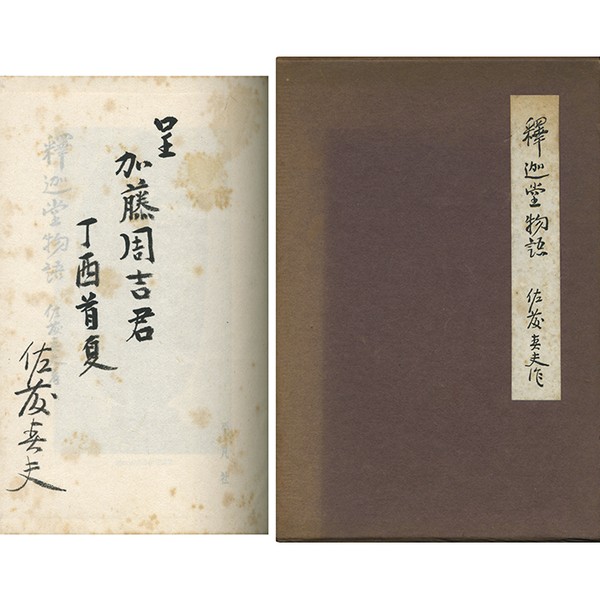 呈
加藤周吉君
丁酉首夏
佐藤春夫
釋迦堂物語
釋迦堂物語
佐藤春夫作